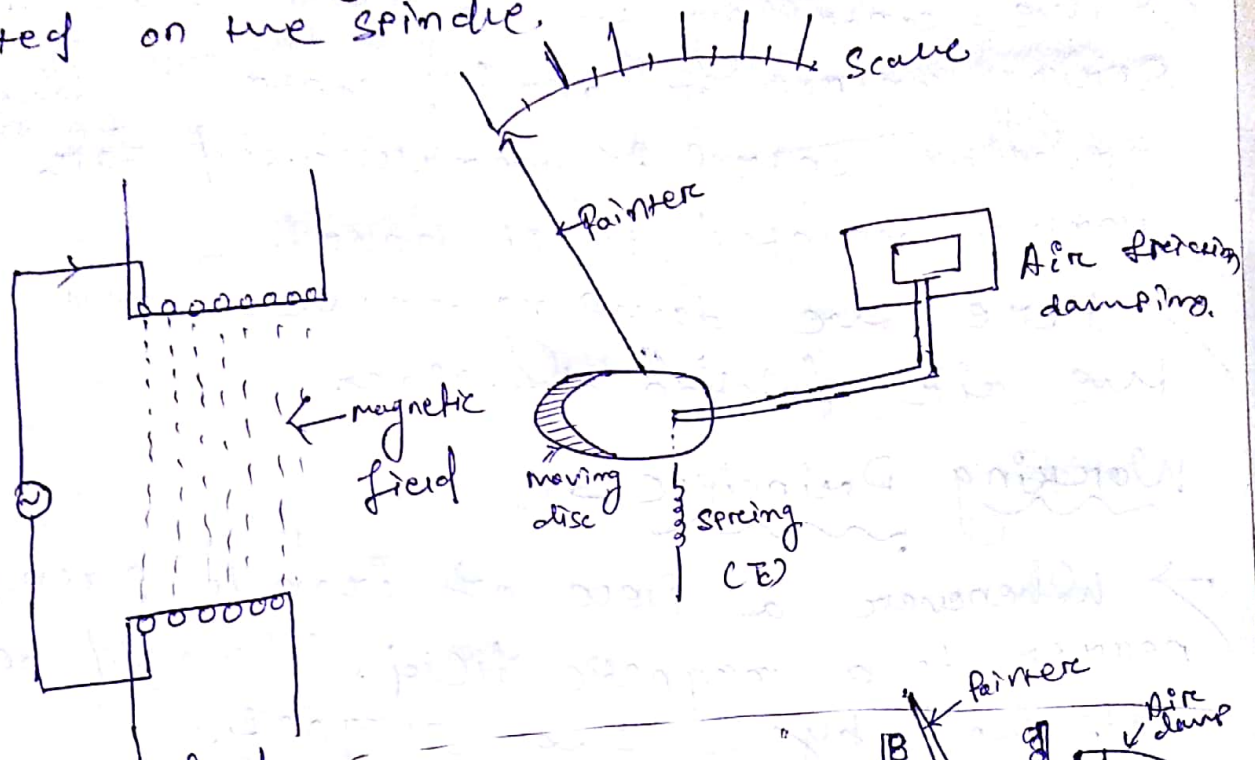 ted on the spindle.
Scale
Pointer
Air friction
damping.
magnetic
field
moving
disc
spring
(E)
Pointer
Air
damp
B